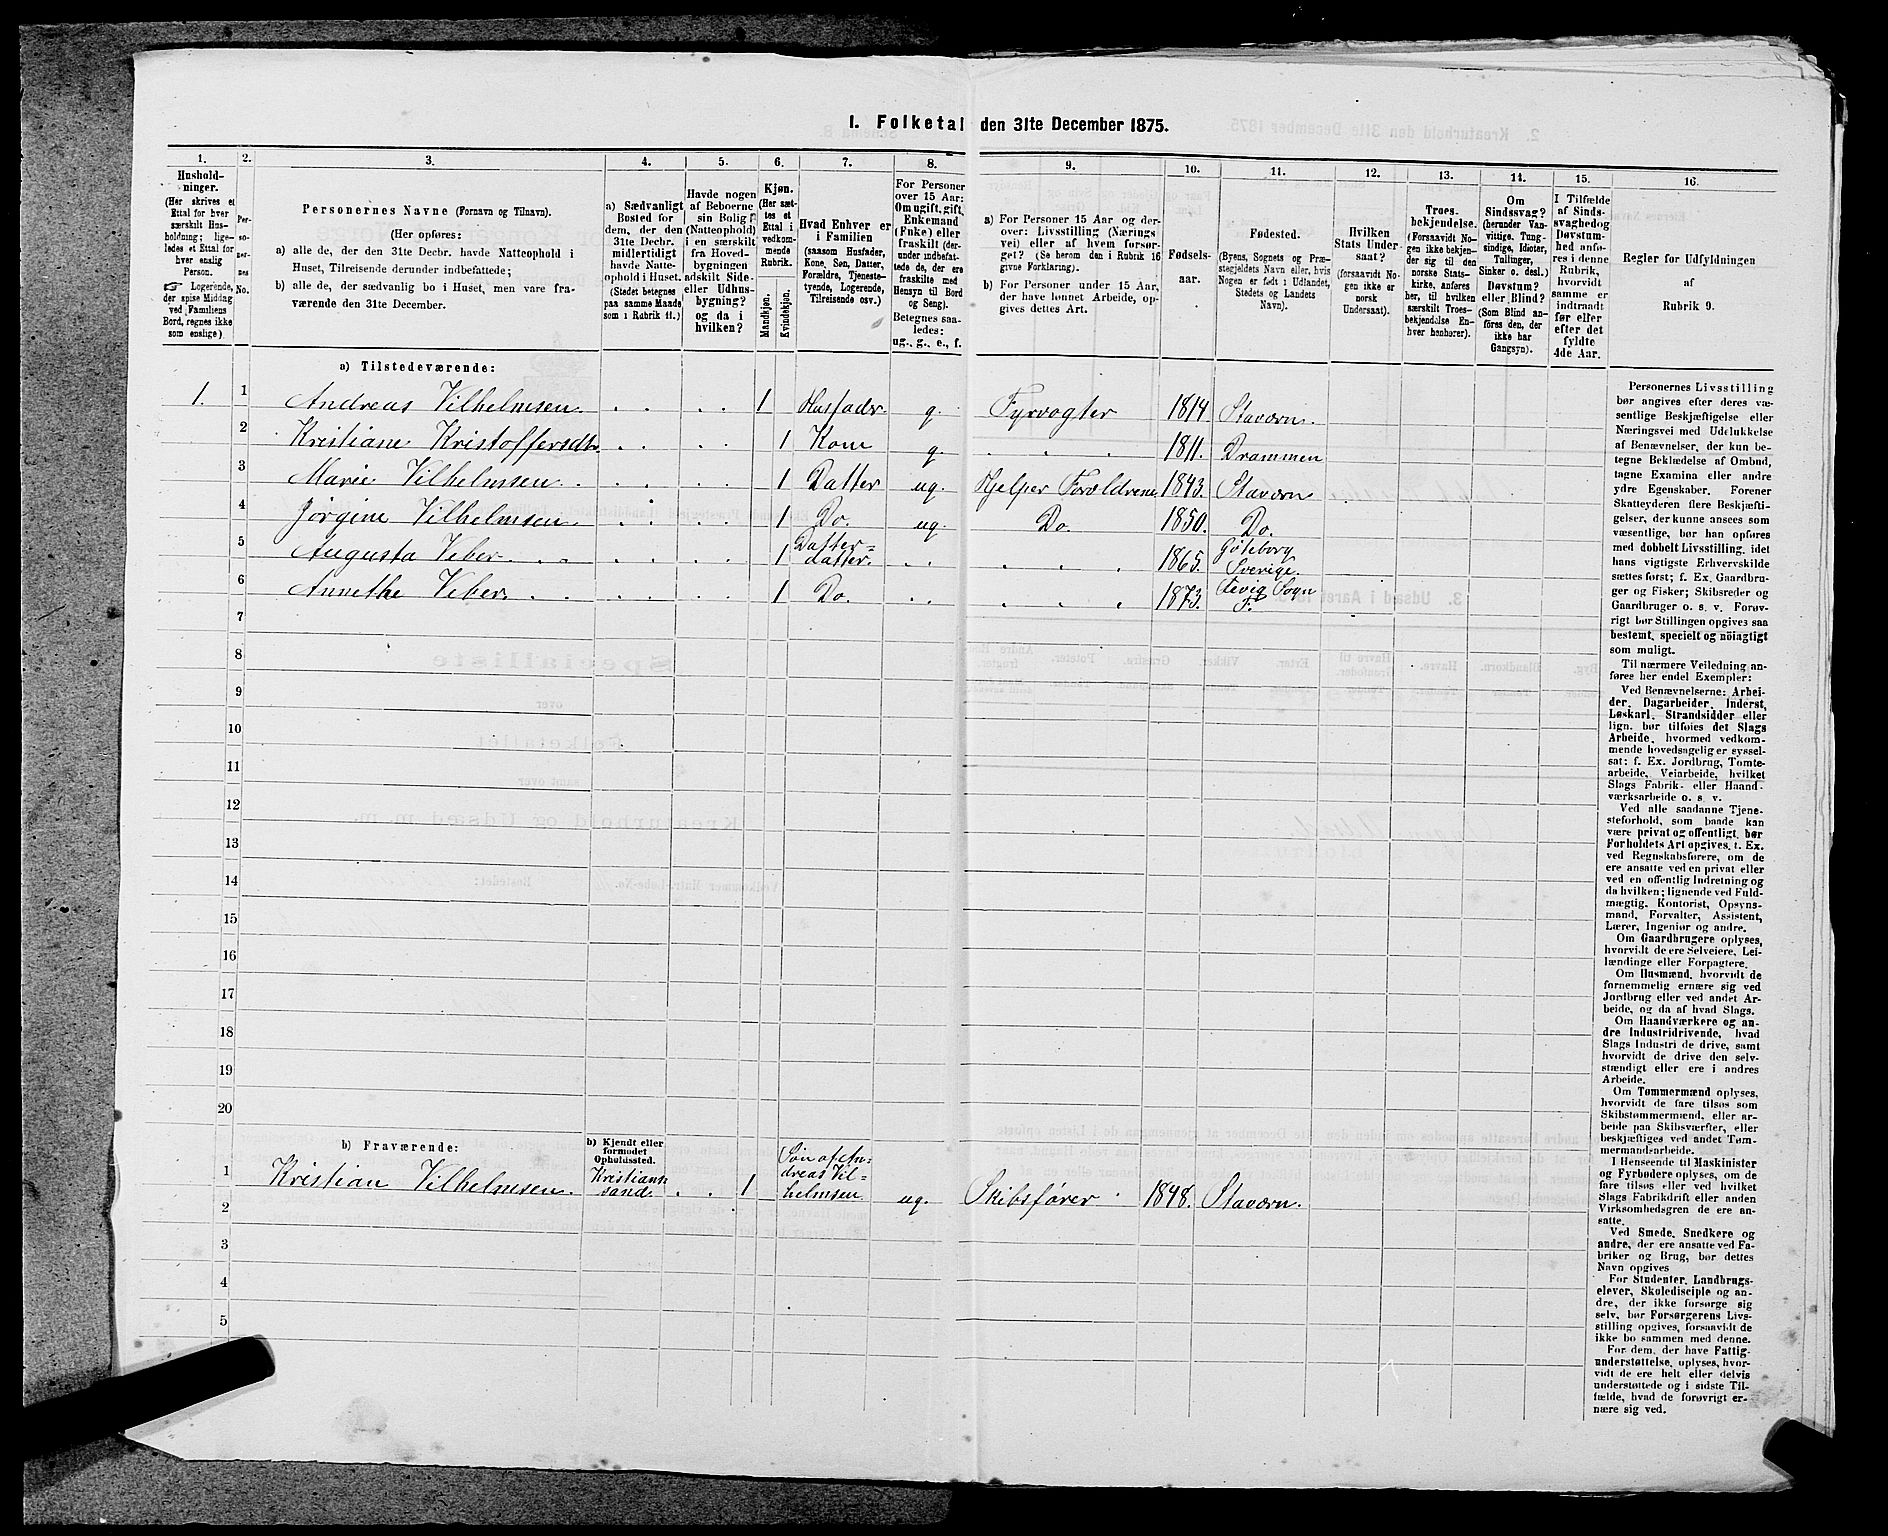 I. Folketal den 31te December 1875.
1. 2. 3. 4. 5. 6. 7. 8. 9. 10. 11. 12. 13. 14. 15. 16.
Hushold-
ninger.
(Her skrives et
Ettal for hver
særskilt Hus-
holdning; lige-
ledes et Ettal for
hver enslig
Person.
☞ Logerende,
der spise Middag
ved Familiens
Bord, regnes ikke
som enslige).
Per-
so-
ner-
nes
No.
Personernes Navne (Fornavn og Tilnavn).
(Her opføres:
a) alle de, der den 31te Decbr. havde Natteophold i
Huset, Tilreisende derunder indbefattede;
b) alle de, der sædvanlig bo i Huset, men vare fra-
værende den 31te December.
a) Sædvanligt
Bosted for
dem, der den
31te Decbr.
midlertidigt
havde Natte-
ophold i Huset.
(Stedet betegnes
paa samme Maade
som i Rubrik 11.)
Havde nogen
af Beboerne
sin Bolig
(Natteophold)
i en særskilt
fra Hoved-
bygningen
adskilt Side-
eller Udhus-
bygning?
og da i
hvilken?
Kjøn.
(Her sæt-
tes et
Ettal i
vedkom-
mende
Rubrik.
Mandkjøn.
Kvindekjøn.
Hvad Enhver er
i Familien
(saasom Husfader,
Kone, Søn, Datter,
Forældre, Tjeneste-
tyende, Logerende,
Tilreisende osv.)
For Personer
over 15 Aar:
Om ugift, gift,
Enkemand
(Enke) eller
fraskilt (der-
under indbefat-
tede de, der ere
fraskilte med
Hensyn til Bord
og Seng).
Betegnes saa-
ledes:
ug., g., e., f.
a) For Personer 15 Aar og der-
over: Livsstilling (Nærings
vei) eller af hvem forsør-
get? (Se herom den i Rubrik 16
givne Forklaring).
b) For Personer under 15 Aar,
der have lønnet Arbeide, op-
gives dettes Art.
Fødsels-
aar.
Fødested.
(Byens, Sognets og Præ-
stegjeldets Navn eller, hvis
Nogen er født i Udlandet,
Stedets og Landets
Navn).
Hvilken
Stats Under-
saat?
(forsaavidt No-
gen ikke er
norsk
Undersaat).
Troes-
bekjendelse.
(Forsaavidt No-
gen ikke bekjen-
der sig til den
norske Stats-
kirke, anføres
her, til hvilken
særskilt Troes-
bekjendelse En-
hver henhører).
Om
Sindssvag?
(herunder Van-
vittige. Tung-
sindige, Idioter,
Tullinger,
Sinker o. desl.)
Døvstum?
eller Blind?
(Som Blind an-
føres den, der
ikke har
Gangsyn).
I Tilfælde
af Sinds-
svaghed og
Døvstum-
hed anfø-
res i denne
Rubrik,
hvorvidt
samme er
indtraadt
før eller
efter det
fyldte
4de Aar.
Regler for Udfyldningen
af
Rubrik 9.
a) Tilstedeværende:
1. 1 Andreas Vilhelmsen. 1 Husfader g. Fyrvogter 1814. Stavern.
2 Kristiane Kristoffersdtr. 1 Kone g. 1811. Drammen
3 Marie Vilhelmsen 1 Datter ug. Hjelper Forældrene 1843. Stavern
4 Jørgine Vilhelmsen 1 Do. ug. Do. 1850. Do.
5 Augusta Veber 1 Datter=
datter. 1865. Göteborg
Sverige.
6 Annethe Veber 1 Do. 1873. Sogn
7
8
9
10
11
12
13
14
15
16
17
18
19
20
b) Fraværende:
b) Kjendt eller
formodet
Opholdssted.
1 Kristian Vilhelmsen. Kristians
sand. 1 Søn af An-
dreas Vil=
helmsen ug. Skibsfører 1848. Stavern.
2
3
4
5
Personernes Livsstilling
bør angives efter deres væ-
sentlige Beskjæftigelse eller
Næringsvei med Udelukkelse
af Benævnelser, der kun be-
tegne Beklædelse af Ombud,
tagne Examina eller andre
ydre Egenskaber. Forener
Skatteyderen flere Beskjæfti-
gelser, der kunne ansees som
væsentlige, bør han opføres
med dobbelt Livsstilling, idet
hans vigtigste Erhvervskilde
sættes først; f. Ex. Gaardbru-
ger og Fisker; Skibsreder og
Gaardbruger o. s. v. Forøv-
rigt bør Stillingen opgives saa
bestemt, specielt og nøiagtigt
som muligt.
Til nærmere Veiledning an-
føres her endel Exempler:
Ved Benævnelserne: Arbei-
der, Dagarbeider, Inderst,
Løskarl, Strandsidder eller
lign. bør tilføies det Slags
Arbeide, hvormed vedkom-
mende hovedsagelig er syssel-
sat: f. Ex. Jordbrug, Tomte-
arbeide, Veiarbeide, hvilket
Slags Fabrik- eller Haand-
værksarbeide o. s. v.
Ved alle saadanne Tjene-
steforhold, som baade kan
være privat og offentligt, bør
Forholdets Art opgives, t. Ex.
ved Regnskabsførere, om de
ere ansatte ved en privat eller
ved en offentlig Indretning og
da hvilken; lignende ved Fuld-
mægtig, Kontorist, Opsyns-
mand, Forvalter, Assistent,
Lærer, Ingeniør og andre.
Om Gaardbrugere oplyses,
hvorvidt de ere Selveiere, Lei-
lændinge eller Forpagtere.
Om Husmænd, hvorvidt de
fornemmelig ernære sig ved
Jordbrug eller ved andet Ar-
beide, og da af hvad Slags.
Om Haandværkere og an-
dre Industridrivende, hvad
Slags Industri de drive, samt
hvorvidt de drive den selv-
stændigt eller ere i andres
Arbeide.
Om Tømmermænd oplyses,
hvorvidt de fare tilsøs som
Skibstømmermænd, eller ar-
beide paa Skibsværfter, eller
beskjæftiges ved andet Tøm-
mermandsarbeide.
I Henseende til Maskinister
og Fyrbødere oplyses, om de
fare tilsøs eller ved hvilket
Slags Fabrikdrift eller anden
Virksomhedsgren de ere an-
satte.
Ved Smede, Snedkere og
andre, der ere ansatte ved Fa-
briker og Brug, bør dettes
Navn opgives
For Studenter, Landbrugs-
elever, Skoledisciple og an-
dre, der ikke forsørge sig
selv, bør Forsørgerens Livs-
stilling opgives, forsaavidt de
ikke bo sammen med denne.
For dem, der have Fattig-
understøttelse, oplyses, hvor-
vidt de ere helt eller delvis
understøttede og i sidste Til-
fælde, hvad de forøvrigt er-
nære sig ved.